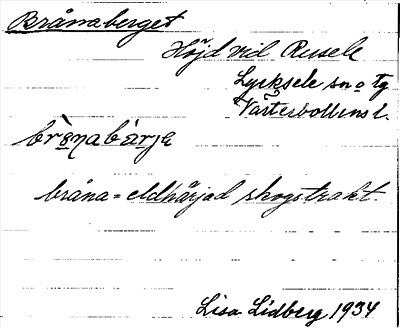 Brånaberget
Höjd vid Rusele
Lycksele sn o tg
Västerbottens l.
brånabärjɛ
bråna = eldhärjad skogstrakt.
Lisa Lidberg 1934